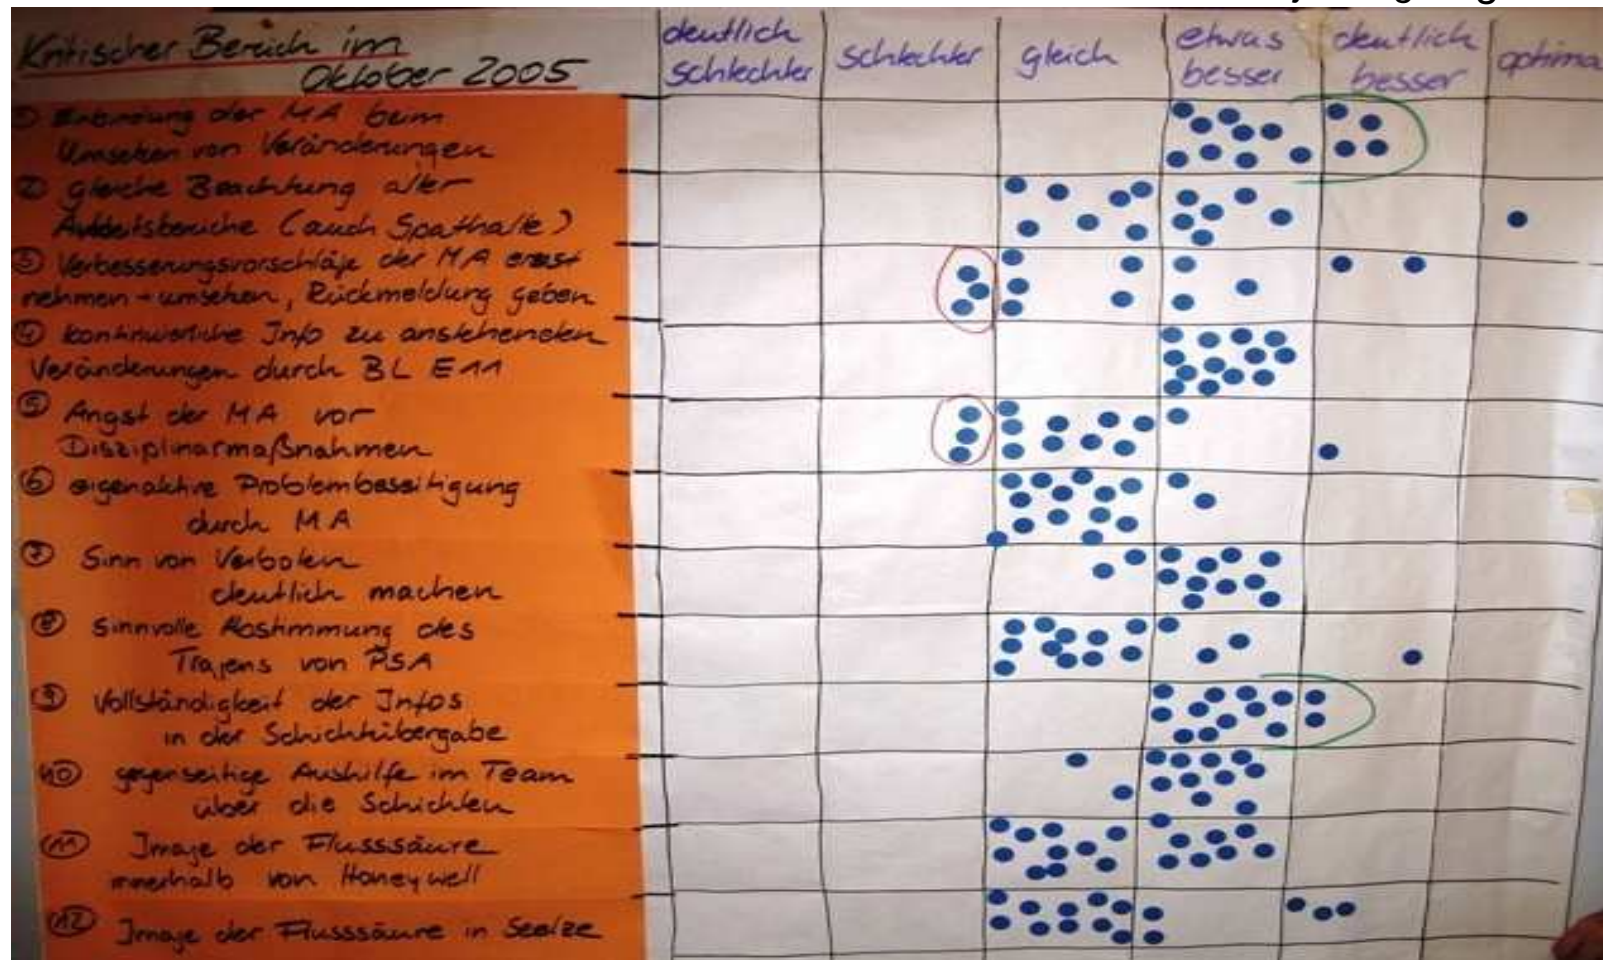 Kritischer Bereich im
Oktober 2005
deutlich
schlechter
schlechter
gleich
etwas
besser
deutlich
besser
optima
① Einbindung der MA beim
Umsetzen von Veränderungen
② gleiche Beachtung aller
Arbeitsbereiche (auch Spathalle)
③ Verbesserungsvorschläge der MA ernst
nehmen - umsetzen, Rückmeldung geben
④ kontinuierliche Info zu anstehenden
Veränderungen durch BL E11
⑤ Angst der MA vor
Disziplinarmaßnahmen
⑥ eigenaktive Problembeseitigung
durch MA
⑦ Sinn von Verboten
deutlich machen
⑧ Sinnvolle Abstimmung des
Tragens von PSA
⑨ Vollständigkeit der Infos
in der Schichtübergabe
⑩ gegenseitige Aushilfe im Team
über die Schichten
⑪ Image der Flusssäure
innerhalb von Honeywell
⑫ Image der Flusssäure in Seelze